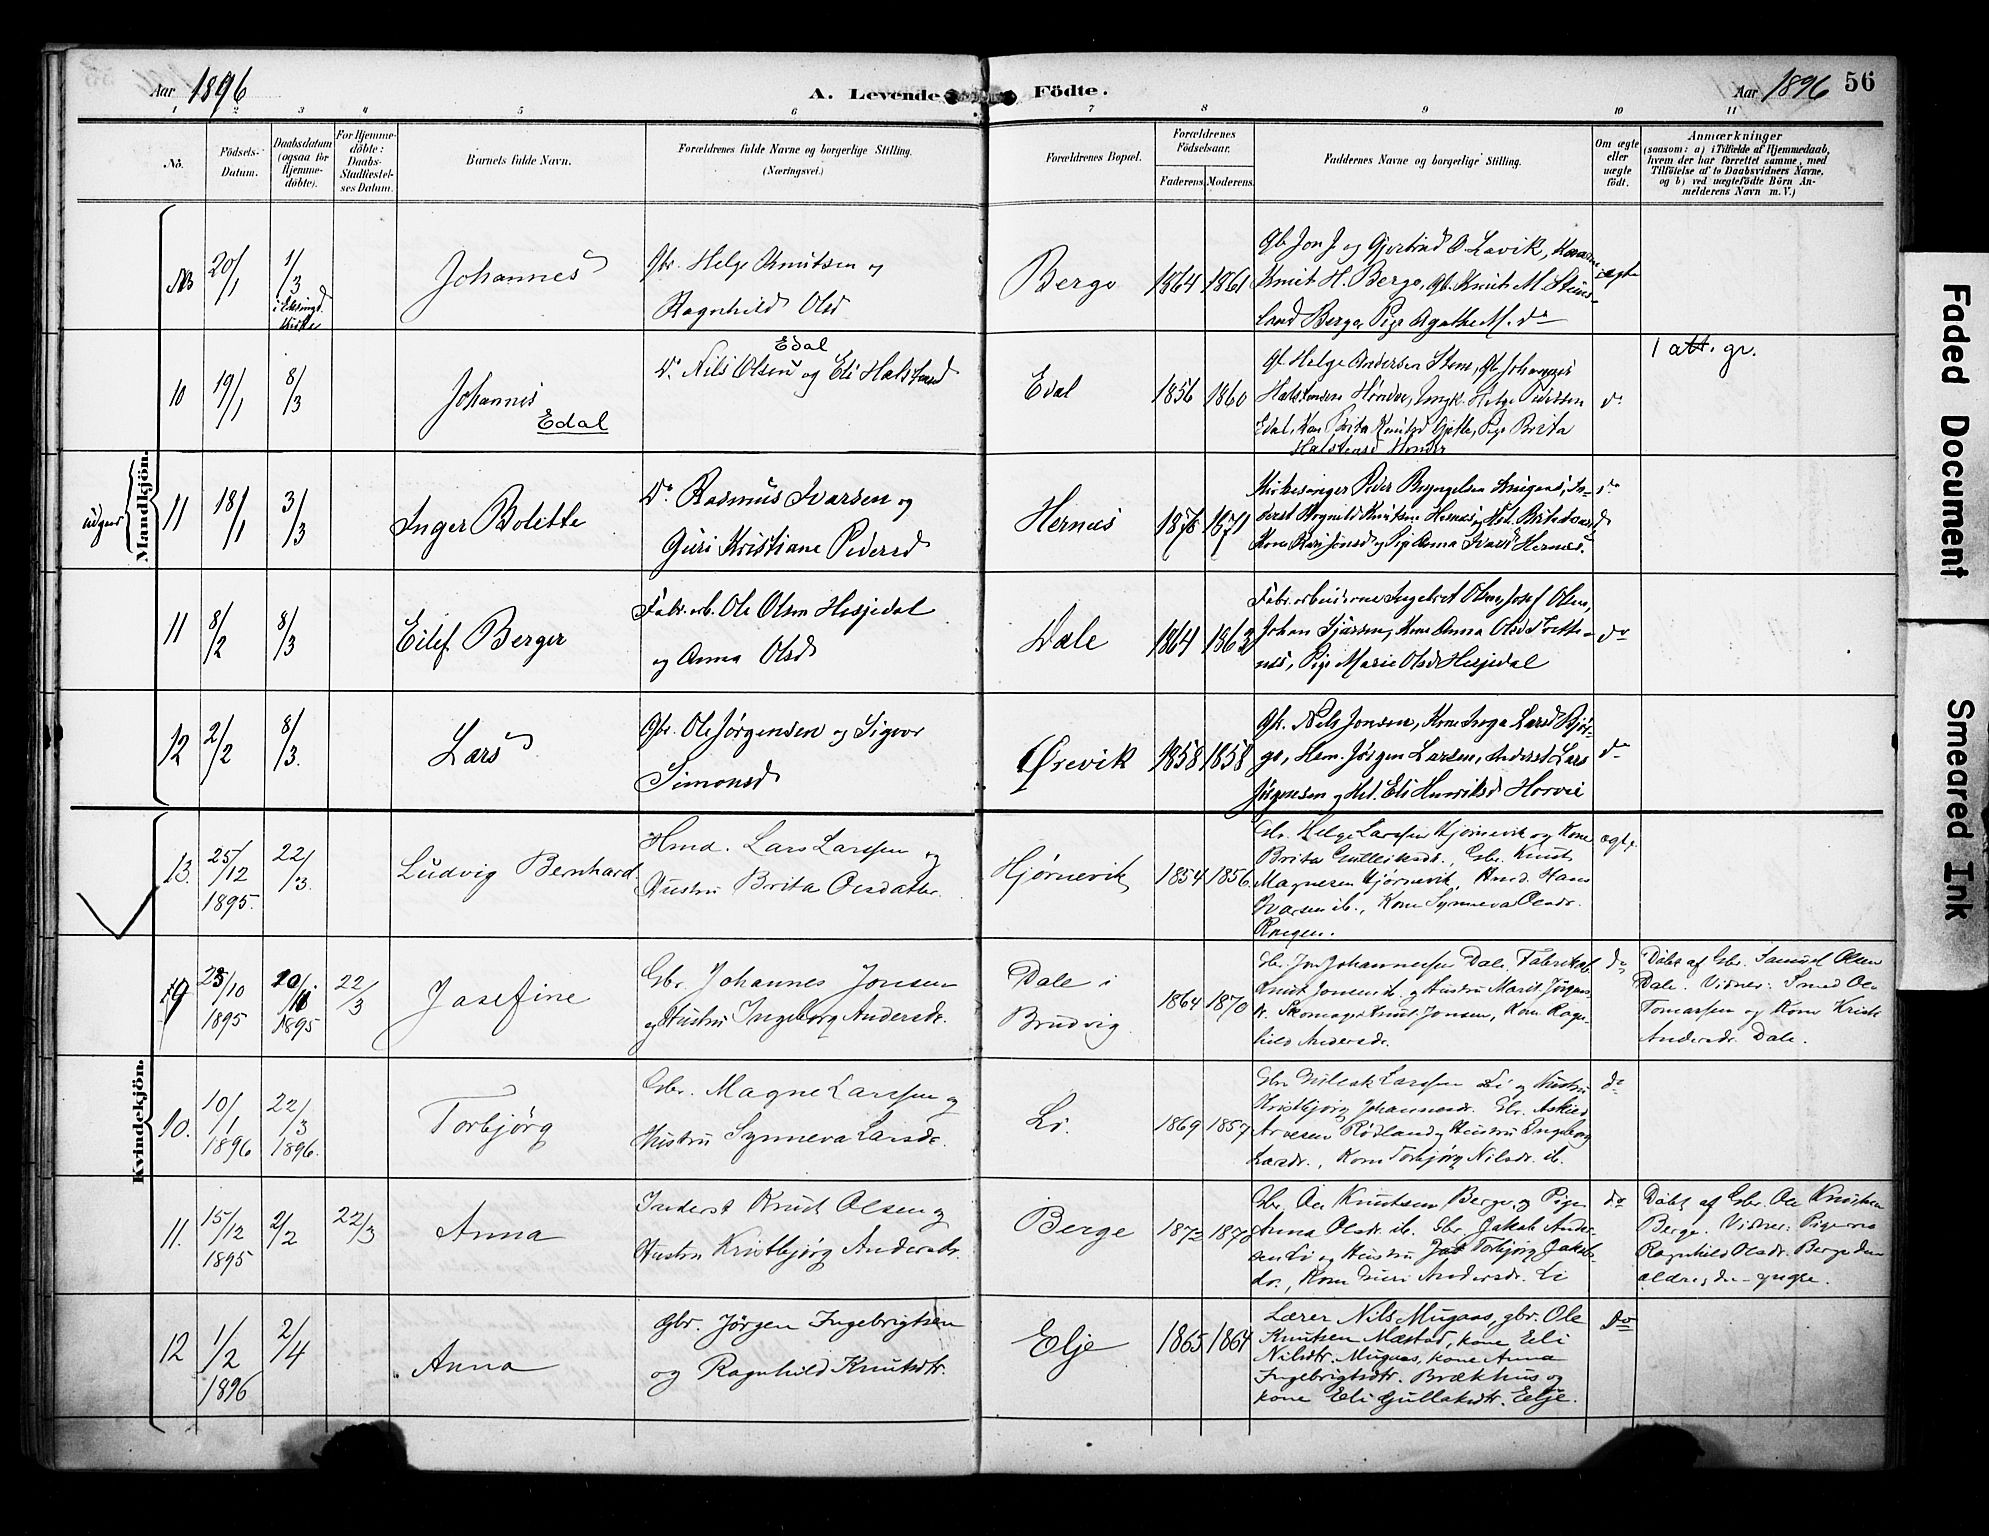 Aar 1896
A. Levende Födte.
Aar 1896 56
1 2 3 4 5 6 7 8 9 10 11
No.
Födsels-Datum.
Daabsdatum (ogsaa for Hjemme-döbte).
For Hjemme-döbte: Daabs-Stadfæstel-ses Datum.
Barnets fulde Navn.
Forældrenes fulde Navne og borgerlige Stilling. (Næringsvei.)
Forældrenes Bopæl.
Forældrenes Födselsaar.
Faderens. Moderens.
Faddernes Navne og borgerlige Stilling.
Om ægte eller uægte födt.
Anmærkninger
(saasom: a) i Tilfælde af Hjemmedaab,
hvem der har forrettet samme, med
Tilföielse af to Daabsvidners Navne,
og b) ved uægtefödte Börn An-
melderens Navn m. V.)
Mandkjön.
20/1 1/3
Johannes
Gbr. Helge Knutsen og
Ragnhild Olsd
Berge 1864 1861
Gbr Jon J. og Gjertrud O. Lavik,
Knut H. Berge, Gbr. Knut M. Steins-
land Berge, Pige Agathe M. do
ægte
10 19/1 8/3
Johannes
Edal
Do Nils Olsen Edal og Eli Halstensd
Edal 1856 1860
Gbr Helge Andersen Stene, Gbr Johannes
Halstensen Hønder, Ungk. Helge Pedersen
Edal, Kone Brita Knutsd Gjette, Pige Brita
Halstensd Hønder
do
1 att. gr.
udgaar
11 18/1 3/3
Inger Bolette
Do Rasmus Ivarsen og
Guri Kristiane Pedersd
Hernes 1871
Kone Kari Jonsd og Pige Anna Ivarsd Hernes.
do
11 8/2 8/3
Eilef Berger
Fabr. arb. Ole Olsen Hesjedal
og Anna Olsd
Dale 1864 1863
Fabr. arbeiderne Ingebret Olsen, Josef Olsen,
Johan Sjursen, Kone Anna Olsd Tette-
nes, Pige Marie Olsd Hesjedal
do
12 2/2 8/3.
Lars
Gbr. Ole Jørgensen og Sigvor
Simonsd
Ørevik 1858 1858
Gbr. Nels Jonsen, Kone Inga Larsd Bjør-
ge, Hem. Jørgen Larsen, Inderst Lars
Jørgensen og Hst. Eli Henriksd Horvei
do
13. 25/12 1895. 22/3.
Ludvig Bernhard
Hmd. Lars Larssen og
Hustru Brita Olsdatter.
Hjørnevik 1854 1856
Gbr. Helge Larssen Hjørnevik og Kone
Brita Gulleiksdr., Gbr. Knut
Magnesen Hjørnevik, Hmd. Hans
Ivarsen ib., Kone Synneva Olsdr.
ægte
Kvindekjön.
9 25/10 1895 1895 22/3
Josefine
Gbr. Johannes Jonsen
og Hustru Ingeborg Andersdr.
Dale i
Brudvig. 1864 1870
Gbr. Jon Johannessen Dale. Fabrikarb.
Knut Jonsen ib. og Hustru Marit Jørgens-
dr. Skomager Knut Jonsen, Kone Ragn-
hild Andersdr.
do
Døbt af Gbr. Samuel Olsen
Dale. Vidner: Smed Ole
Tomassen og Kone Kristi
Andersdr. Dale.
10. 10/1 1896 22/3 1896.
Torbjørg
Gbr. Magne Larssen og
Hustru Synneva Larsdr.
Li. 1869 1857
Gbr Gulleik Larssen Li og Hustru
Kristbjørg Johannesdr. Gbr. Askild
Arnesen Rødland og Hustru Ingeborg
Larsdr., Kone Torbjørg Nilsdr. ib.
do
11. 15/12 1895 2/2 22/3
Anna
Inderst Knut Olsen og
Hustru Kristbjørg Andersdr.
Berge 1872 1870
Gbr. Ole Knutsen Berge og Pige
Anna Olsdr. ib. Gbr. Jakob Ander-
sen Li og Hustru Torbjørg Jakobs-
dr., Kone Guri Andersdr. Li
do
Døbt af Gbr. Ole Knutsen
Berge. Vidner: Pigerne
Ragnhild Olsdr. Berge den
ældre, den yngre.
12 1/2 1896 2/4
Anna
Gbr. Jörgen Ingebrigtsen
og Ragnhild Knutsdtr.
Eelje 1865 1864
Lærer Nils Mugaas, gbr. Ole
Knutsen Mæstad, kone Eeli
Nilsdtr. Mugaas, kone Anna
Ingebrigtsdtr. Brækhus og
kone Eeli Gullaksdtr. Eelje.
do
Faded Document
Smeared Ink